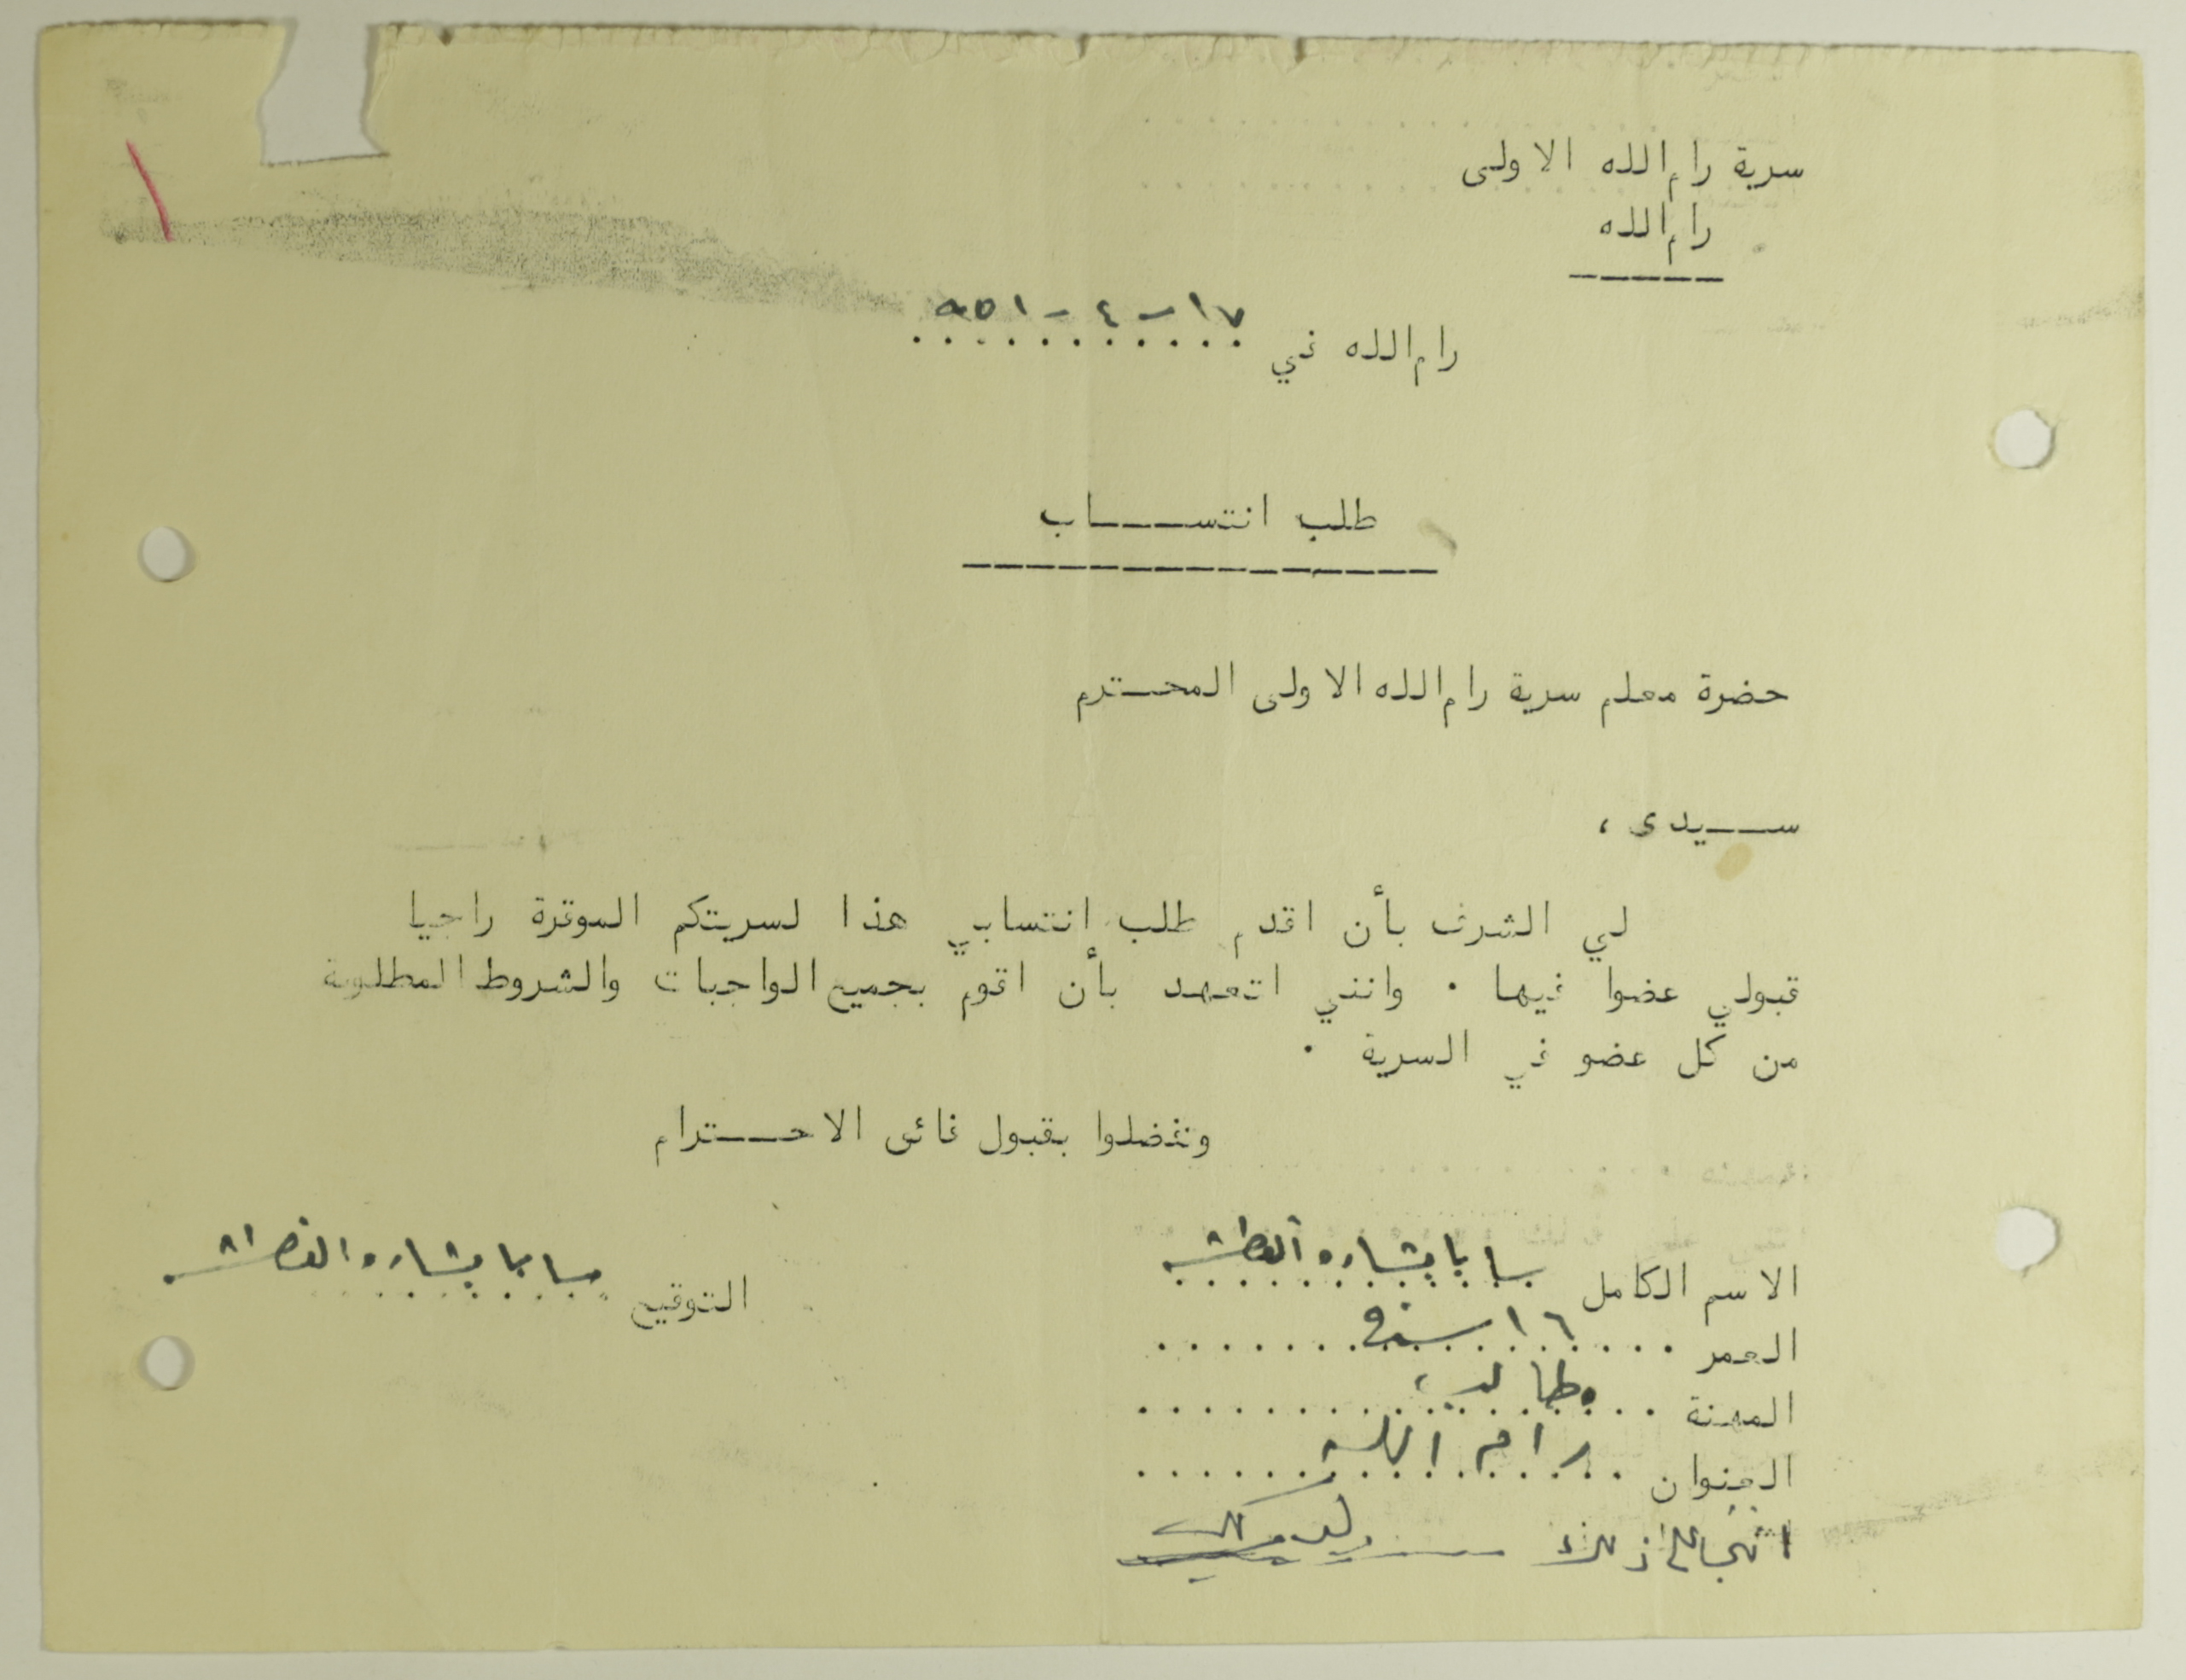 سرية رام الله الاولى
رام الله
رام الله في ١٧-٤-٩٥١
طلب انتساب
حضرة معلم سرية رام الله الاولى المحترم
سيدى ،
لي الشرف بأن اقدم طلب انتسابي هذا لسريتكم الموقرة راجيا
قبولي عضوا فيها . وانني اتعهد بأن اقوم بجميع الواجبات والشروط المطلوبة
من كل عضو في السرية .
وتفضلوا بقبول فائق الاحترام
الاسم الكامل سابا بشاره
العمر ١٦ سنة
المهنة طالب
العنوان رام الله
التوقيع سابا بشاره